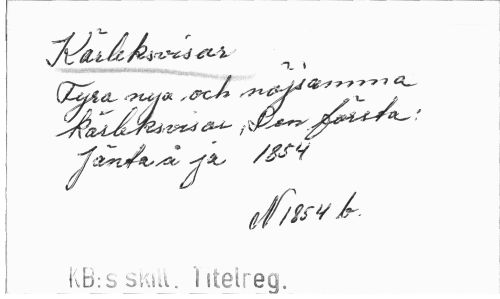 Kärleksvisor
Fyra nya och nöjsamma
kärleksvisor, Den första:
Jänta å ja 1854
N 1854 b.
KB:s skill. Titelreg.